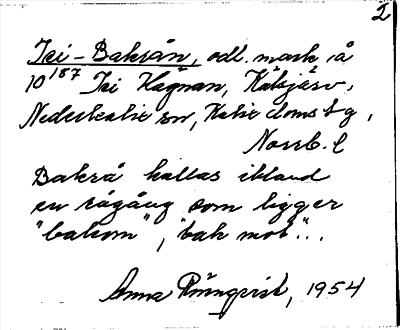 2
Isi-Bakrån, odl. mark å
10¹⁸⁷ Isi Hägnan, Kälsjärv,
Nederkalix sn, Kalix doms tg,
Norrb. l
Bakrå kallas ibland
en rågång som ligger
"bakom", "bak mot"...
Anna Rönnqvist, 1954